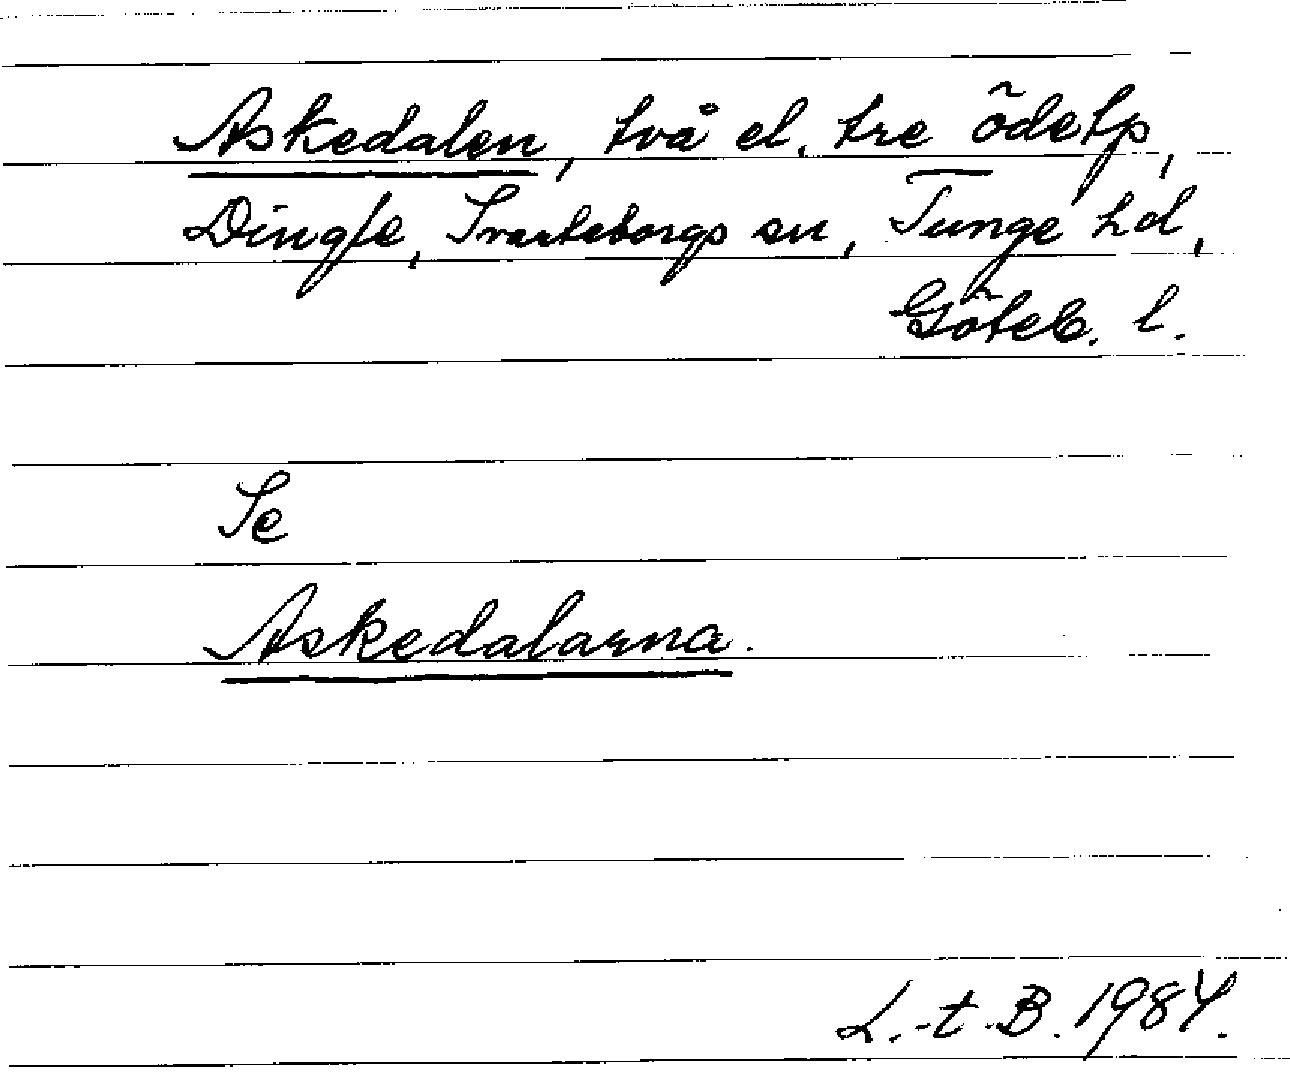 Askedalen, två el. tre ödetp,
Dingle, Svarteborgs sn, Tunge hd,
Göteb. l.
Se
Askedalarna.
L.-t. B. 1984.